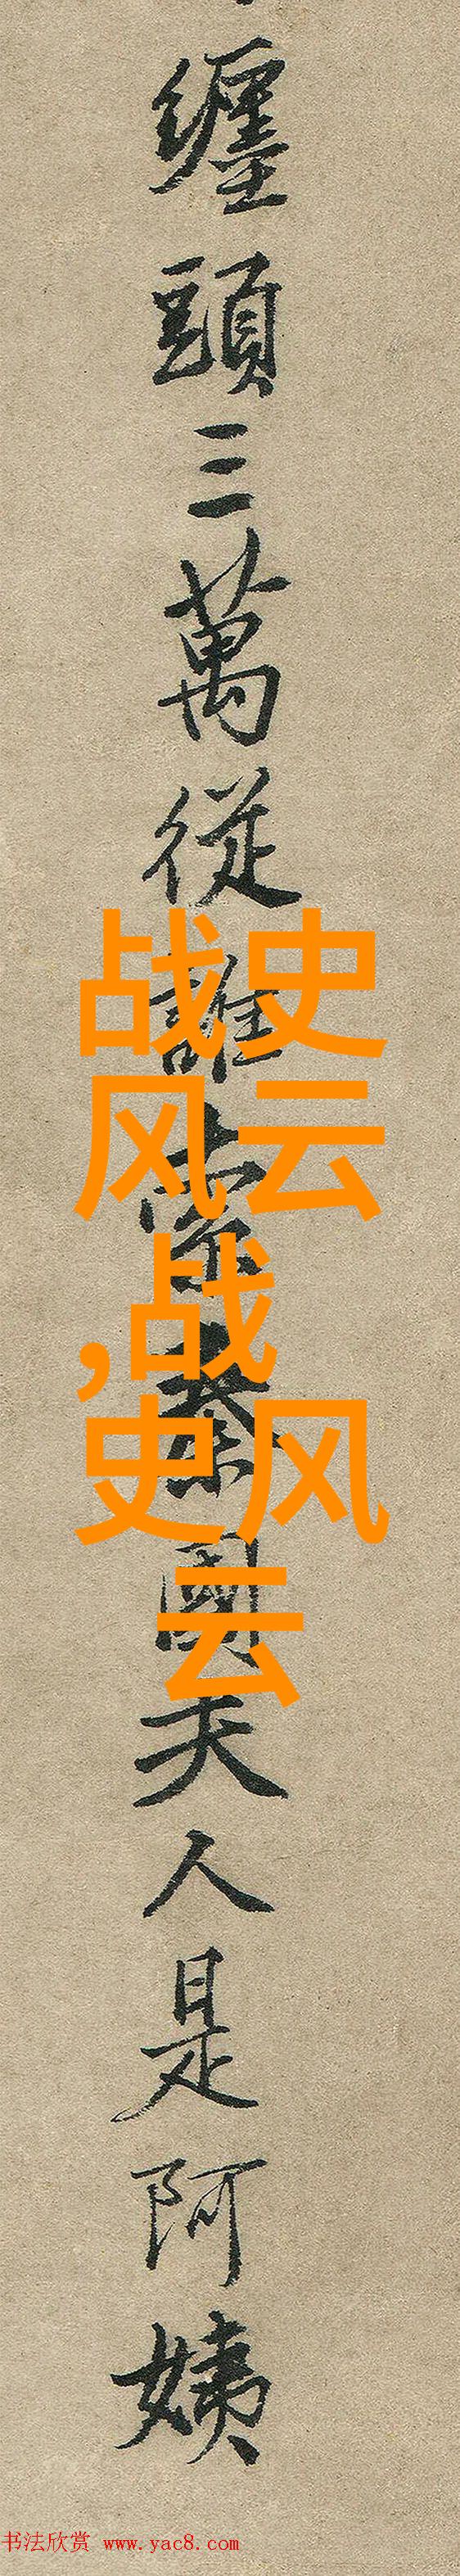 纏頭三萬從誰索秦國夫人是阿姨
战史
风云
,战
史风
云
书法欣赏 www.yac8.com